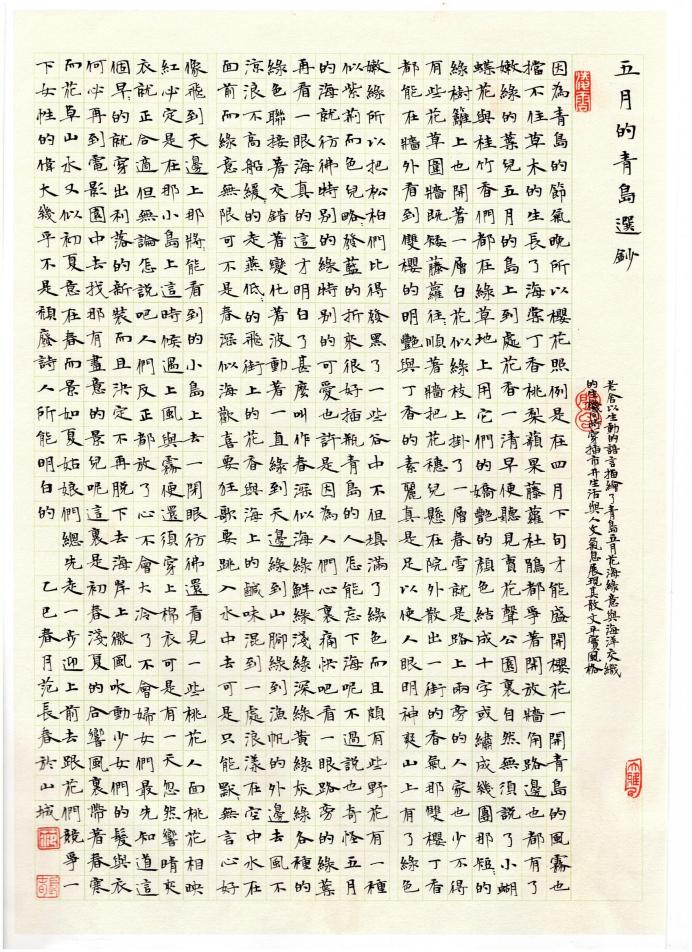 五月的青島選鈔
老舍以生動的語言描繪了青島五月花海綠意與海洋交織
的生機間穿插市井生活與人文氣息展現其散文平實風格
因為青島的節氣晚所以櫻花照例是在四月下旬才能盛開櫻花一開青島的風霧也
擋不住草木的生長了海棠丁香桃梨蘋果藤蘿杜鵑都爭著開放牆角路邊也都有了
嫩綠的葉兒五月的島上到處花香一清早便聽見賣花聲公園裏自然無須說了小蝴
蝶花與桂竹香們都在綠草地上用它們的嬌艷的顏色結成十字或繡成幾團那短的
綠樹籬上也開著一層白花似綠枝上掛了一層春雪就是路上兩旁的人家也少不得
有些花草園牆既矮藤蘿往往順著牆把花穗兒懸在院外散出一街的香氣那雙櫻丁香
都能在牆外看到雙櫻的明艷與丁香的素麗真是足以使人眼明神爽山上有了綠色
嫩綠所以把松柏們比得發黑了一些谷中不但填滿了綠色而且頗有些野花有一種
似紫荊而色兒略略發藍的折來很好插瓶青島的人怎能忘下海呢不過說也奇怪五月
的海就彷彿特別的綠特別的可愛也許是因為人們心裏痛快吧看一眼路旁的綠葉
再看一眼海真的這才明白了甚麼叫作春深似海綠鮮綠淺綠深綠黃綠灰綠各種的
綠色聯接著交錯著變化著波動著一直綠到天邊綠到山腳綠到漁帆的外邊去風不
涼浪不高船緩緩的走燕低低的飛街上的花香與海上的鹹味混到一處浪漾在空中水在
面前而綠意無限可不是春深似海歡喜要狂歌要跳入水中去可是只能默無言心好
像飛到天邊上那將能看到的小島上去一閉眼彷彿還看見一些桃花人面桃花相映
紅必定是在那小島上這時候遇上風與霧便還須穿上棉衣可是有一天忽然響晴夾
衣就正合適但無論怎說吧人們反正都放了心不會大冷了不會婦女們最先知道這
個早早的就穿出利落的新裝而且決定不再脫下去海岸上微風吹動少女們的髮與衣
何必再到電影園中去找那有畫意的景兒呢這裏是初春淺夏的合響風裏帶著春寒
而花草山水又似初夏意在春而景如夏姑娘們總先走一步迎上前去跟花們競爭一
下女性的偉大幾乎不是頹廢詩人所能明白的
乙巳春月范長春於山城